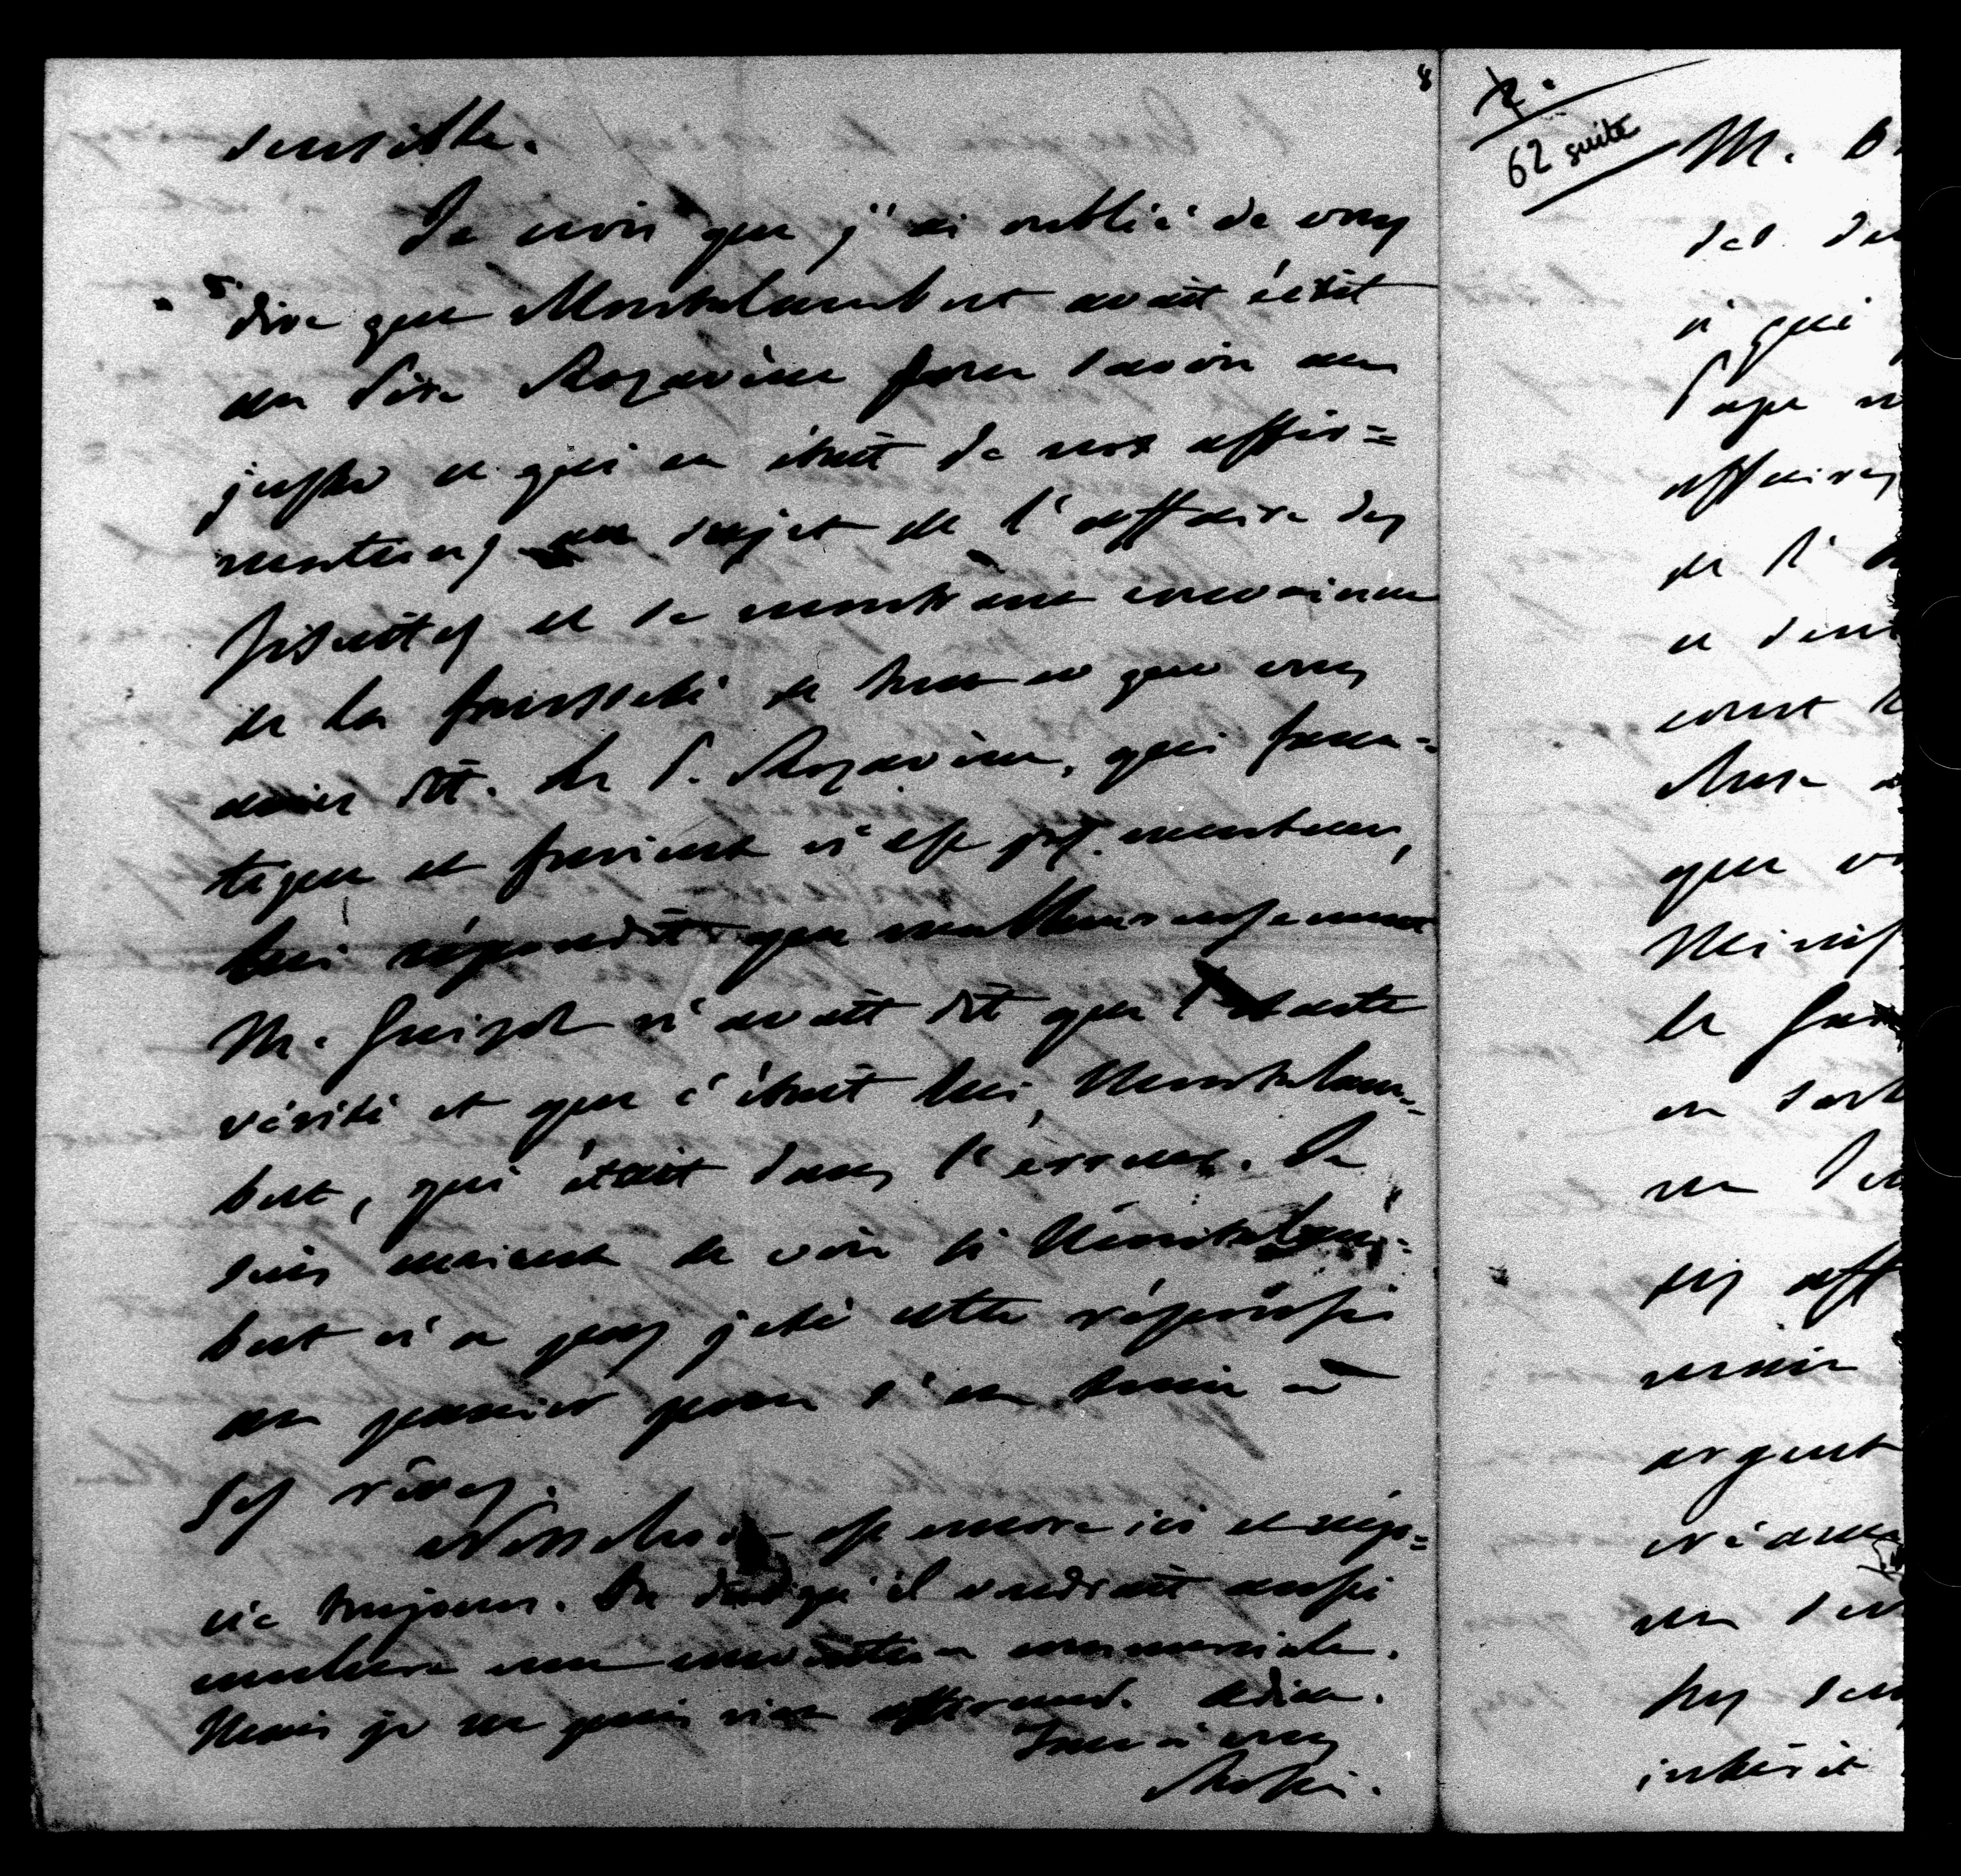 sensible.
Je crois que j'ai oublié de vous
dire que Montalembert avait écrit
au Père Rozaven pour savoir au
juste ce qui en était de nos affir=
mations au sujet de l'affaire des
Jésuites et se montrant convaincu
de la fausseté de tout ce que vous
aviez dit. Le P. Rozaven, qui
n'est pas menteur,
lui répondit que malheureusement
M. Guizot n'avait dit que l'exacte
vérité et que c'était lui, Montalem=
bert, qui était dans l'erreur. Je
suis curieux de voir si Montalem=
bert n'a pas jeté cette réponse
au panier pour s'en tenir à
ses rêves.
Nesselrode est encore ici et négo=
cie toujours. On dit qu'il voudrait aussi
conclure une convention commerciale.
Mais je ne puis rien affirmer. Adieu.
Tout à vous
Rossi.
8
62 suite
M. B
qui
Pape
affaires
de l'
chose
que
Minis
le
en
un
argent
un
intérêt